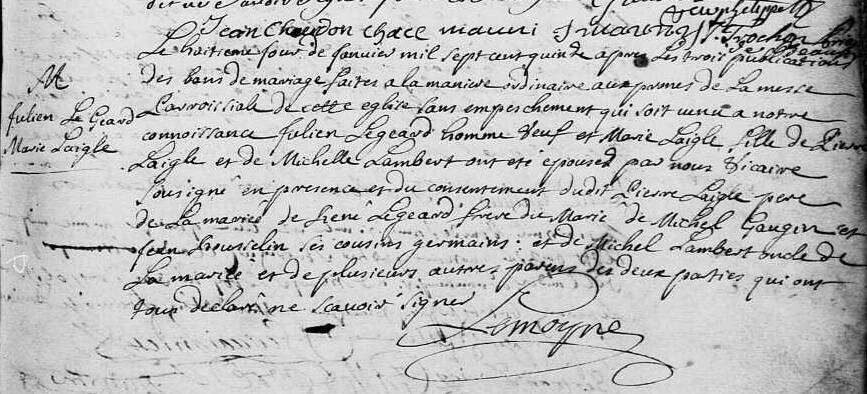 Jean Chaudon
Le huitieme jour de janvier mil sept cent quinze apres les trois publications
des bans de mariage faites a la maniere ordinaire aux prones de La messe
parroissialle de cette eglise sans empeschement qui soit venu a notre
connoissance Julien Legeard homme veuf et Marie Laigle fille de Pierre
Laigle et de Michelle Lambert ont eté epoused par nous vicaire
sousigné en presence et du consentement dudit Pierre Laigle pere
de La mariée de René Legeard frere du Marié de Michel Gaugin et
Jean housselin ses cousins germains : et de Michel Lambert oncle de
La mariée et de plusieurs autres parens des deux parties qui ont
tous declaré ne scavoir signer
Lemoyne
M
Julien Le Geard
Marie Laigle